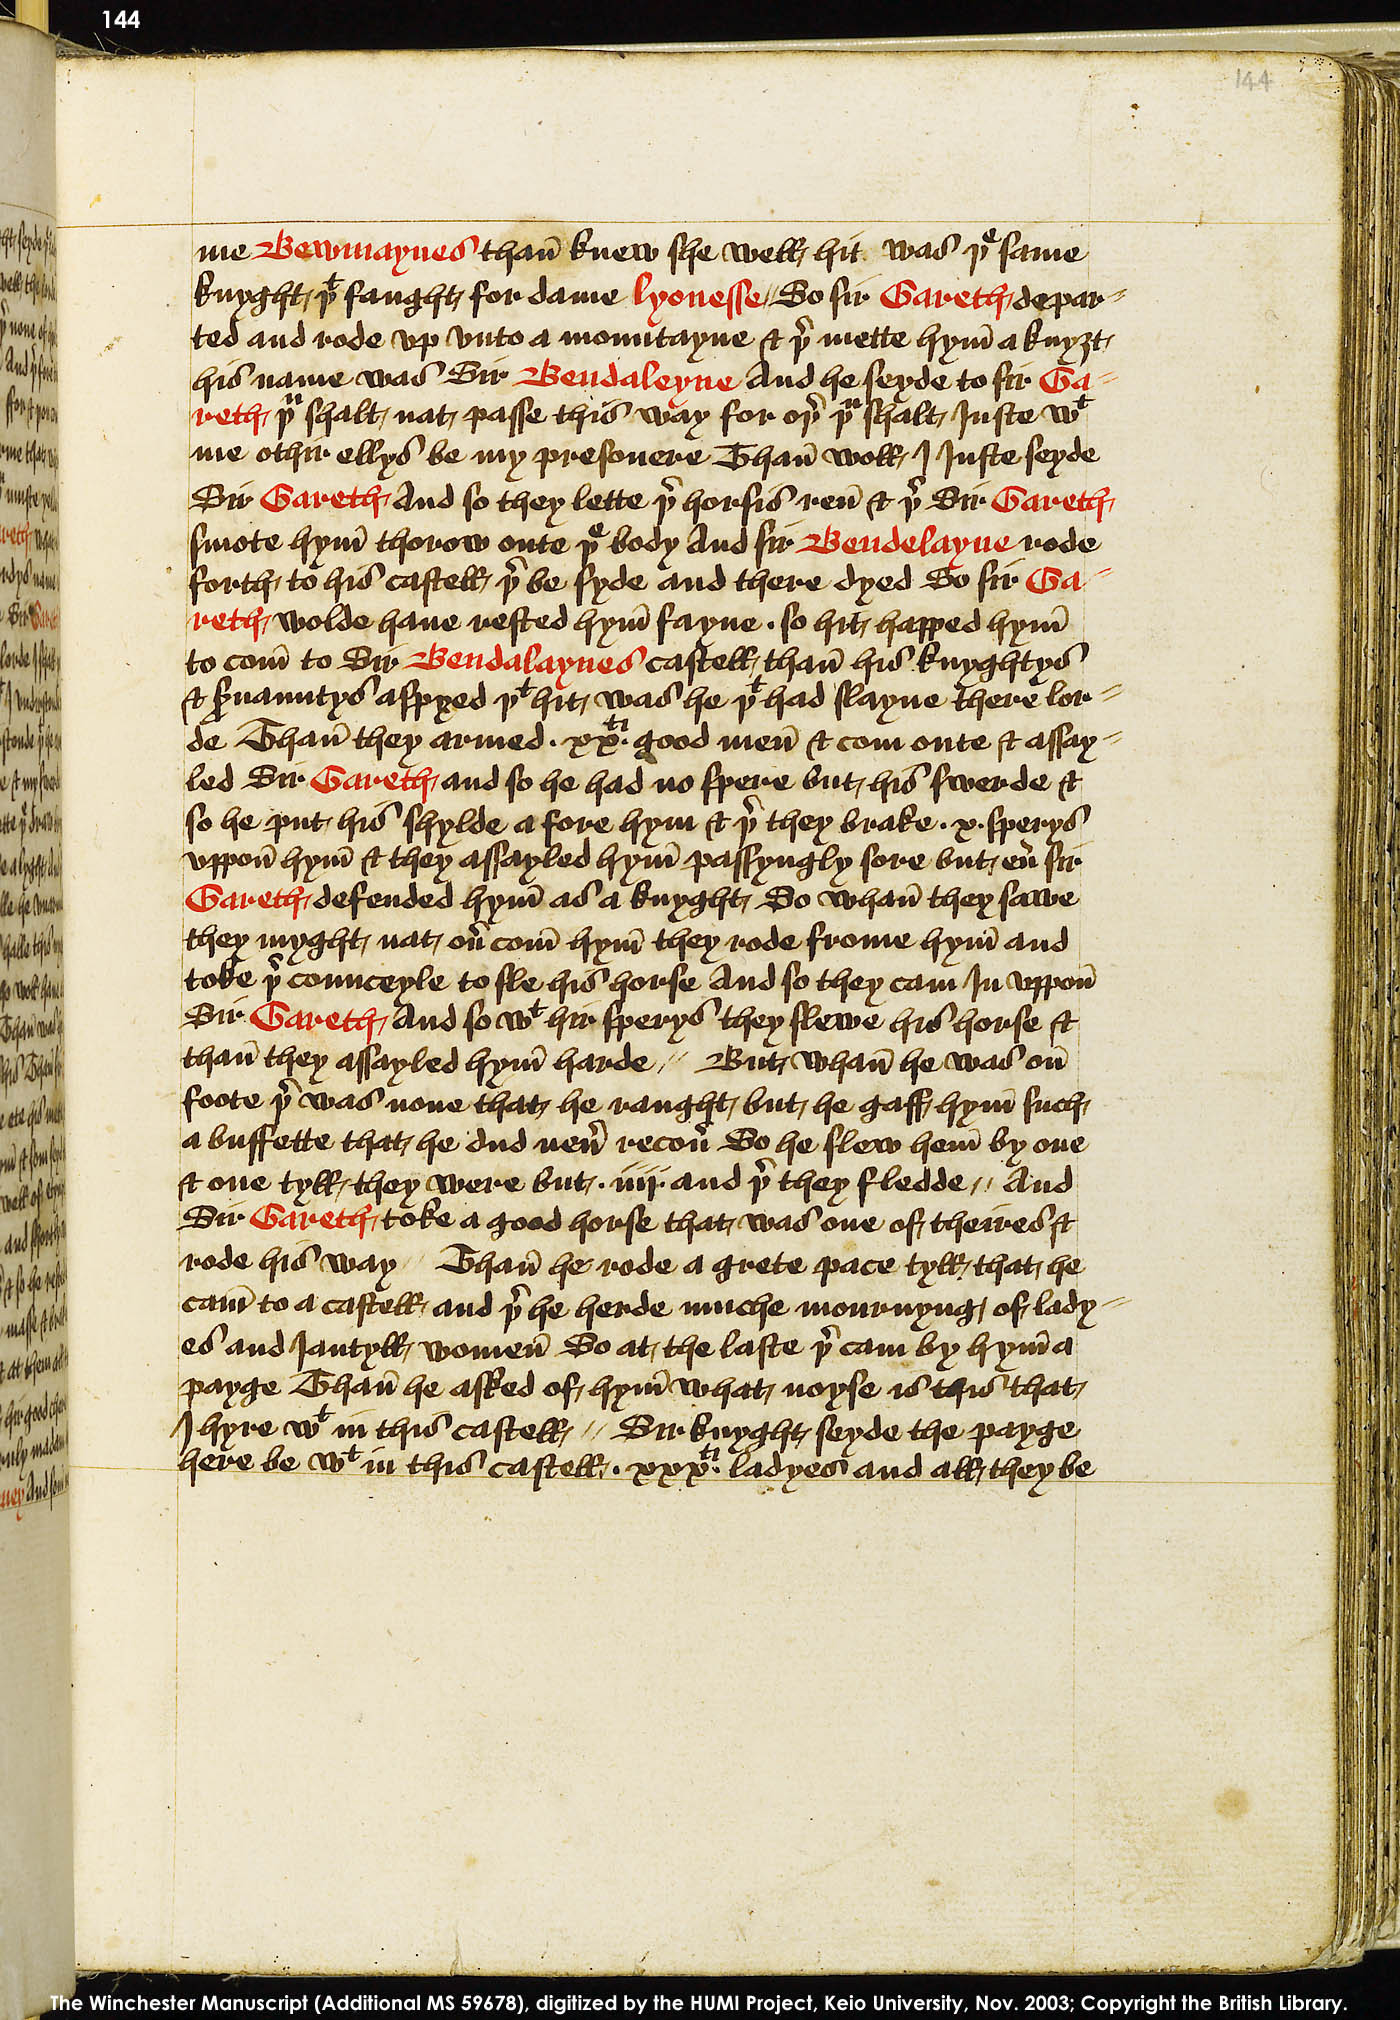 144
144
me Bewmaynes thañ knew she well hit was þᵉ same
knyght þᵗ faught for dame lyonesse // So sir Gareth depar=
ted and rode vp vnto a mountayne & þ̉ mette hym̄ a knyȝt
his name was Sir Bendaleyne And he seyde to sir Ga=
reth þᵘ shalt nat passe this way for oþ̉ þᵘ shalt Juste wᵗ
me othir ellys be my presonere Thañ woll I Juste seyde
Sir Gareth And so they lette þ̉ horsis reñ & þ̉ Sir Gareth
smote hym̄ thorow oute þᵉ body And sir Bendelayne rode
forth to his castell þ̉ be syde and there dyed So sir Ga=
reth wolde haue rested hym̄ fayne . so hit happed hym̄
to com̄ to Sir Bendalaynes castell thañ his knyghtys
& s̉uauntys aspyed þᵗ hit was he þᵗ had slayne there lor=
de Thañ they armed . xxᵗⁱ . good meñ & com oute & assay=
led Sir Gareth and so he had no spere but his swerde &
so he put his shylde a fore hym & þ̉ they brake . x . sperys
vppoñ hym̄ & they assayled hym̄ passyngly sore but eủ sir
Gareth defended hym̄ as a knyght So whañ they sawe
they myght nat oủ com̄ hym̄ they rode frome hym̄ and
toke þ̉ counceyle to sle his horse And so they cam In vppoñ
Sir Gareth And so wᵗ hir sperys they slewe his horse &
thañ they assayled hym̄ harde // But whañ he was oñ
foote þ̉ was none that he raught but he gaff hym̄ such
a buffette that he dud neủ recoủ So he slew hem̄ by one
& one tyll they were but . iiij . and þ̉ they fledde // And
Sir Gareth toke a good horse that was one of theires &
rode his way // Thañ he rode a grete pace tyll that he
cam̄ to a castell and þ̉ he herde muche mournyng of lady=
es and Jantyll womeñ So at the laste þ̉ cam by hym̄ a
payge Thañ he asked of hym̄ what noyse is this that
I hyre wᵗ in this castell // Sir knyght seyde the payge
here be wᵗ in this castell . xxxᵗⁱ . ladyes and all they be
The Winchester Manuscript (Additional MS 59678), digitized by the HUMI Project, Keio University, Nov. 2003; Copyright the British Library.